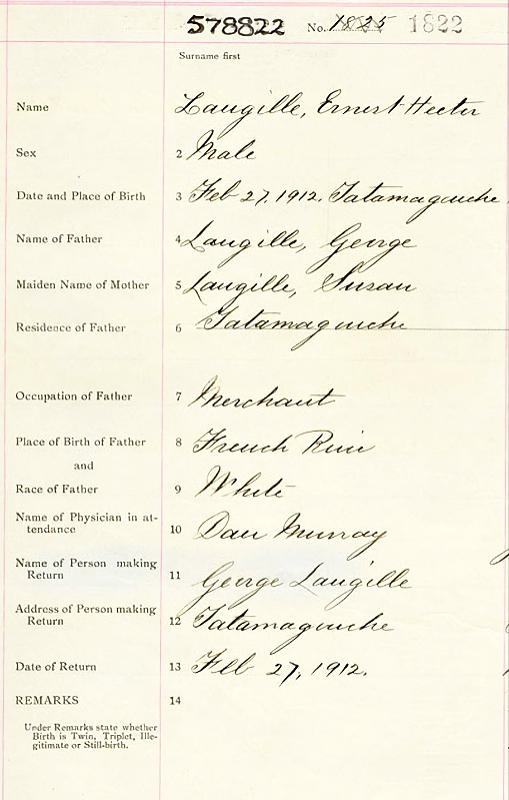 578822 No. 1825 1822
Surname first
Name Langille, Ernest Hector
Sex 2 Male
Date and Place of Birth 3 Feb 27, 1912. Tatamagouche
Name of Father 4 Langille, George
Maiden Name of Mother 5 Langille, Susan
Residence of Father 6 Tatamagouche
Occupation of Father 7 Merchant
Place of Birth of Father 8 French River
and
Race of Father 9 White
Name of Physician in at-
tendance 10 Dan Murray
Name of Person making
Return 11 George Langille
Address of Person making
Return 12 Tatamagouche
Date of Return 13 Feb 27, 1912.
REMARKS 14
Under Remarks state whether
Birth is Twin, Triplet, Ille-
gitimate or Still-birth.